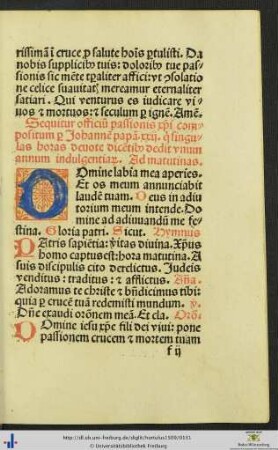 rissimā ī cruce ꝓ salute hoīs ꝑtulisti. Da
nobis supplicibꝰ tuis: doloribꝰ tue pas
sionis sic mēte trāliter affici: vt ꝯsolatio
ne celice suauitatꝭ mereamur eternaliter
satiari. Qui venturus es iudicare vi
uos ⁊ mortuos: ⁊ seculum ꝑ ignē. Amē.
Sequitur officiū passionis xp̄i com
positum ꝑ Johannē papā.xxij. q̇ singu
las horas deuote dicētibꝰ dedit vnum
annum indulgentiaꝝ. Ad matutinas.
Domine labia mea aperies.
Et os meum annunciabit
laudē tuam. Deus in adiu
torium meum intende. Do
mine ad adiuuandū me fe
stina. Gloria patri. Sicut. Hymnus
Patris sapiētia: v̓itas diuina. Xp̄us
homo captus est: hora matutina. A
suis discipulis cito derelictus. Judeis
venditus: traditus: ⁊ afflictus. Añ.
Adoramus te christe ⁊ bn̄dicimus tibi:
quia ꝑ crucē tuā redemisti mundum. ℣.
Dn̄e exaudi orōnem meā. Et cla. Orō.
Domine iesu xp̄e fili dei viui: pone
passionem crucem ⁊ mortem tuam
f ij
http://dl.ub.uni-freiburg.de/diglit/hortulus1500/0101
© Universitätsbibliothek Freiburg